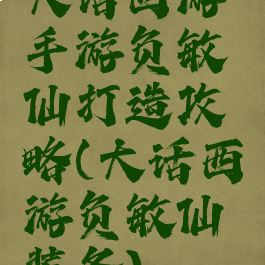 大话西游
手游负敏
仙打造攻
略(大话西
游负敏仙
装备)